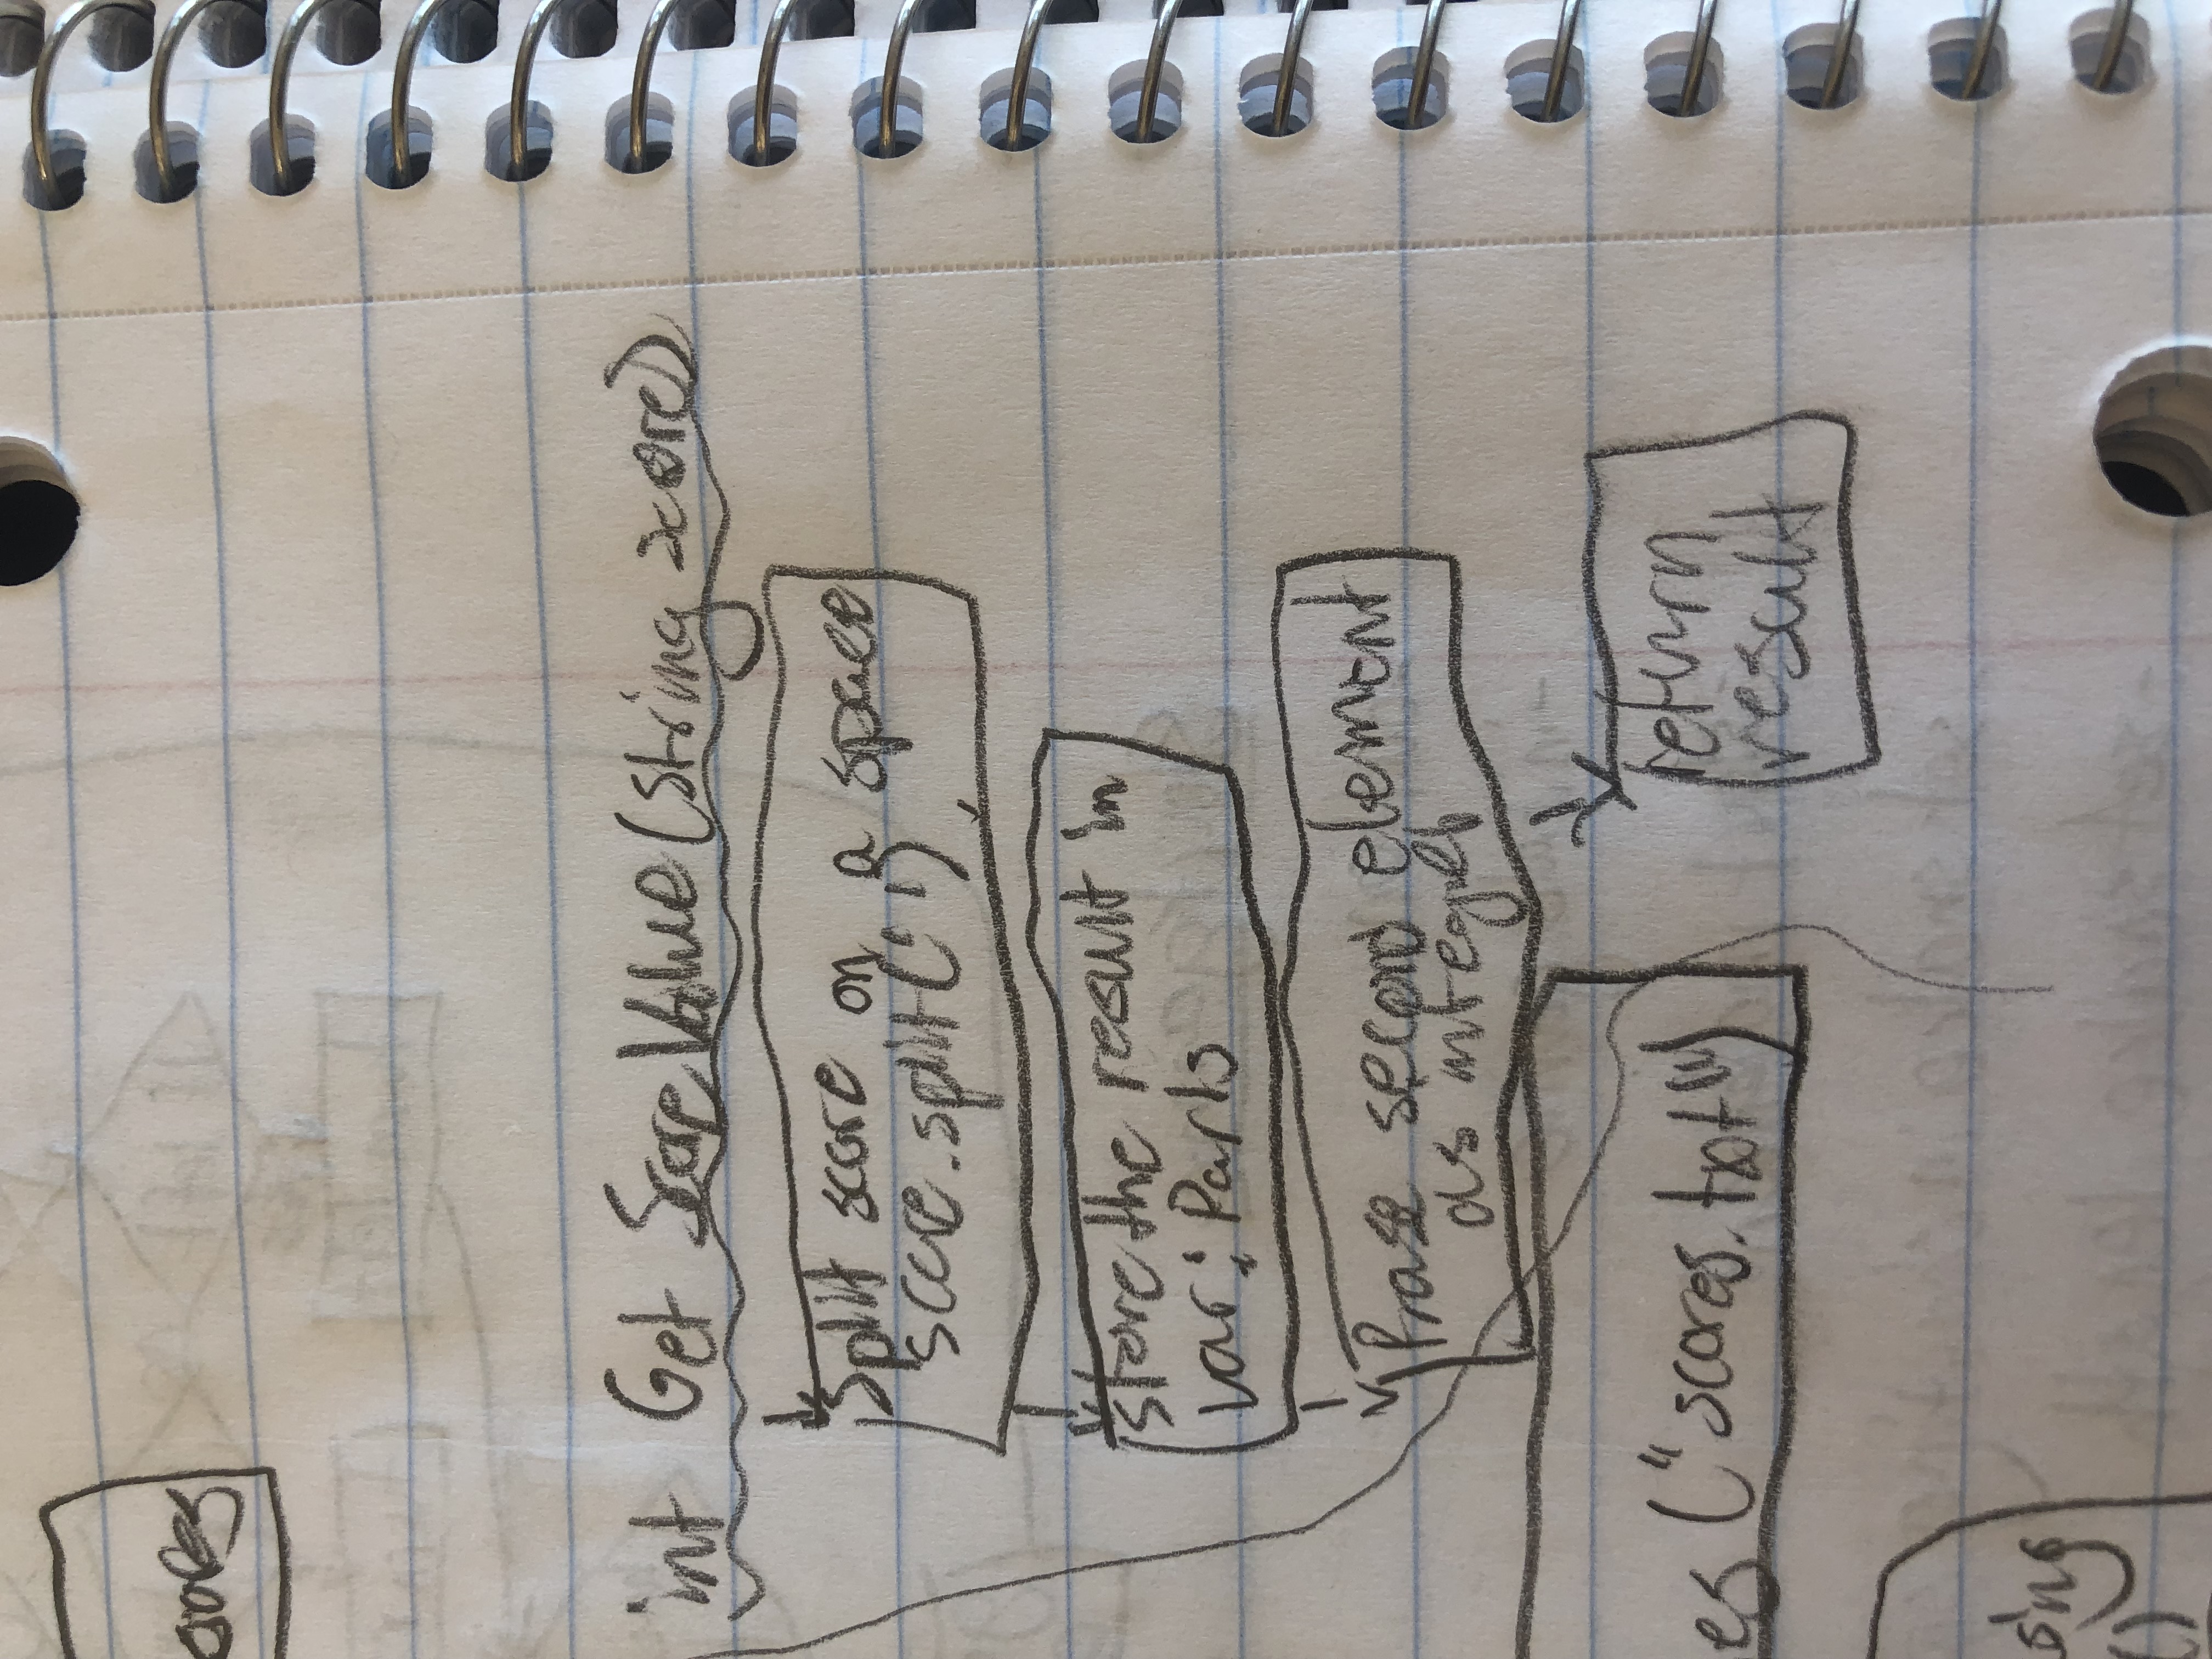 int Get ScoreValue(String score)
Split score on a space
score.split(' ')
store the result in
var: Parts
Prase second element
as integer
es ("scores.txt")
return
result